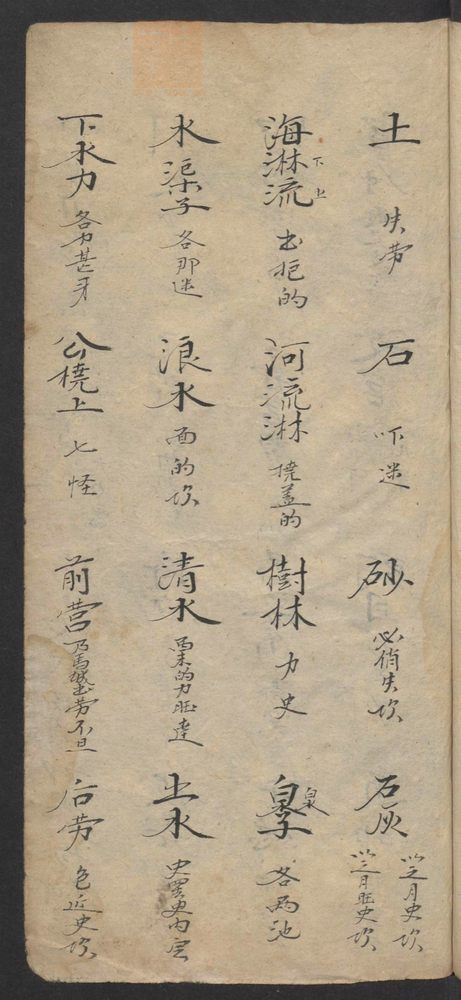 土 失劳
石 吓迷
砂 必俏失坎
石灰 以之月史坎 以之月旺史坎
海淋流 下上 出拒的
河流淋 撓盖的
樹林 力史
泉子 泉 各两池
水渠子 各那迷
浪水 面的坎
清水 的力旺達
土水 史史内定
下水力 各力甚牙
公橈上 七怪
前营 乃馬城劳不旦
后劳 色近史坎